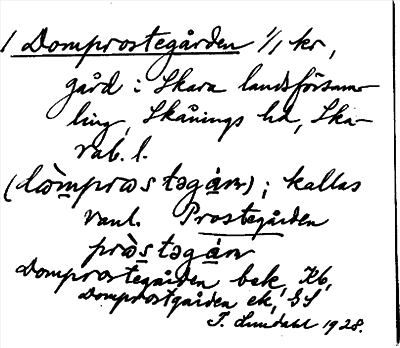 1 Domprostegården 1/1 kr,
gård i Skara landsförsam-
ling, Skånings hd, Ska-
rab. l.
(dòmprɷstəgán); kallas
vanl. Prostegården
prɷ̀stəgán
Domprostegården bek, Kb,
Domprostgården ek, GS
T. Lundahl 1928.